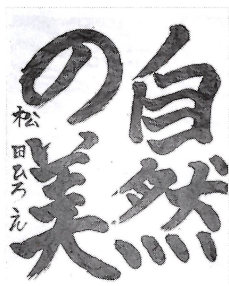 自然
の美
松田ひろえ